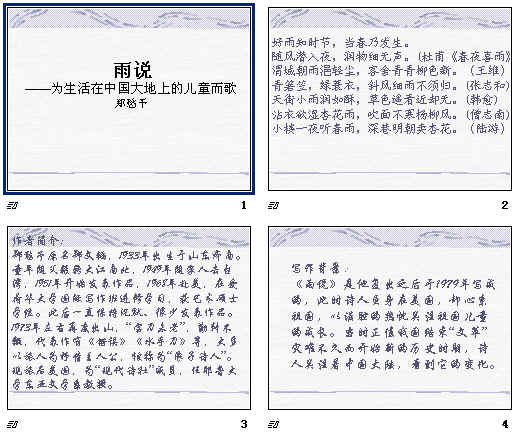 雨说
——为生活在中国大地上的儿童而歌
郑愁予
1
好雨知时节，当春乃发生。
随风潜入夜，润物细无声。(杜甫《春夜喜雨》
渭城朝雨浥轻尘，客舍青青柳色新。（王维）
青箬笠，绿蓑衣，斜风细雨不须归。（张志和）
天街小雨润如酥，草色遥看近却无。（韩愈）
沾衣欲湿杏花雨，吹面不寒杨柳风。(僧志南)
小楼一夜听春雨，深巷明朝卖杏花。（陆游）
2
作者简介：
郑愁予原名郑文韬，1933年出生于山东济南。
童年随父辗转大江南北，1949年随家人去台
湾，1951年开始发表作品，1968年赴美，在爱
荷华大学国际写作班进修学习，获艺术硕士
学位。此后一直保持沉默、很少发表作品。
1973年左右再度出山，“宝刀未老”，勤耕不
辍，代表作有《错误》《水手刀》等，大多
以旅人为抒情主人公，被称为“浪子诗人”。
现旅居美国，为“现代诗社”成员，任耶鲁大
学东亚文学系教授。
3
写作背景：
《雨说》是他复出之后于1979年写成
的，此时诗人虽身在美国，却心系
祖国，以满腔的热忱关注祖国儿童
的成长。当时正值我国结束“文革”
灾难不久而开始新的历史时期，诗
人关注着中国大陆，看到它的变化。
4